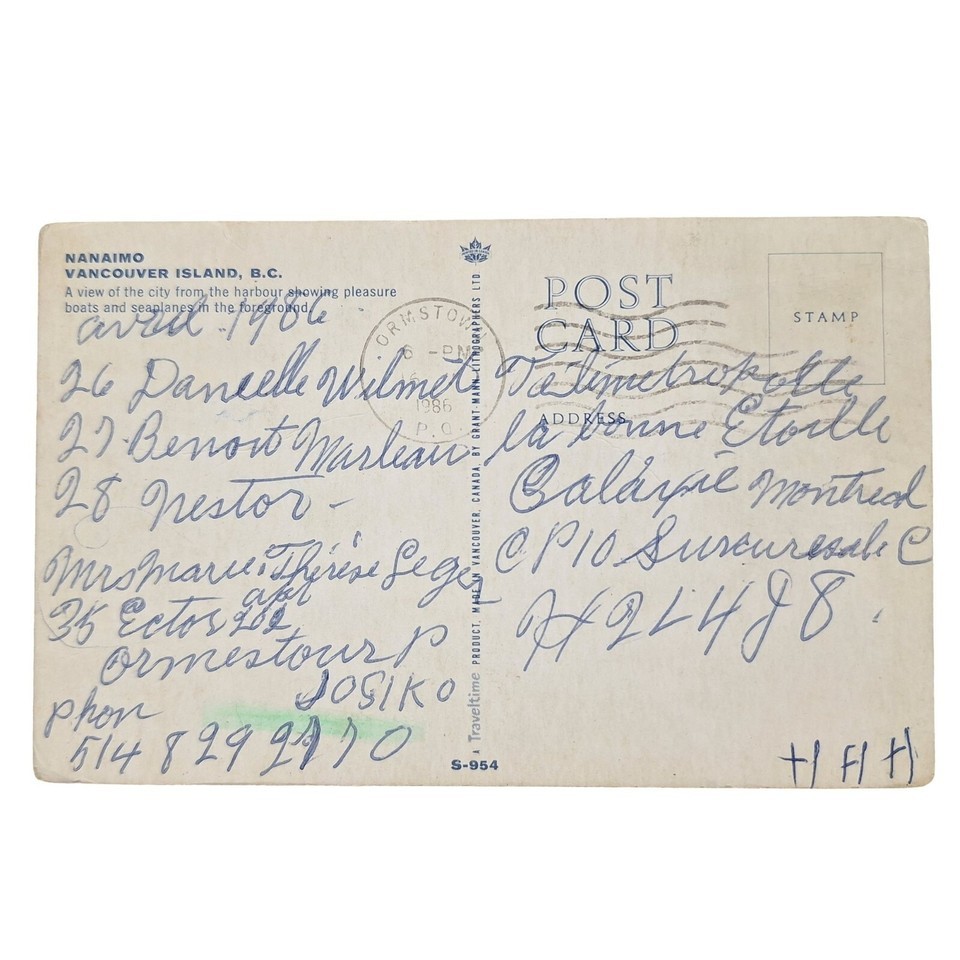 NANAIMO
VANCOUVER ISLAND, B.C.
A view of the city from the harbour showing pleasure
boats and seaplanes in the foreground.
avril 1986
26 Danielle Wilmet
27 Benoit Marleau
28 Nestor -
Mrs Marie Thérèse Leger
35 Ector apt 202
Ormestour P
JOS1KO
phon
514 829 2770
ORMSTOWN
6 - PM
1986
P.Q.
A Traveltime PRODUCT, MADE IN VANCOUVER, CANADA, BY GRANT-MANN LITHOGRAPHERS LTD
S-954
POST
CARD
ADDRESS
STAMP
Télémetropolle
la bonne Étoille
Galaxie Montreal
CP10 C
H2L4J8